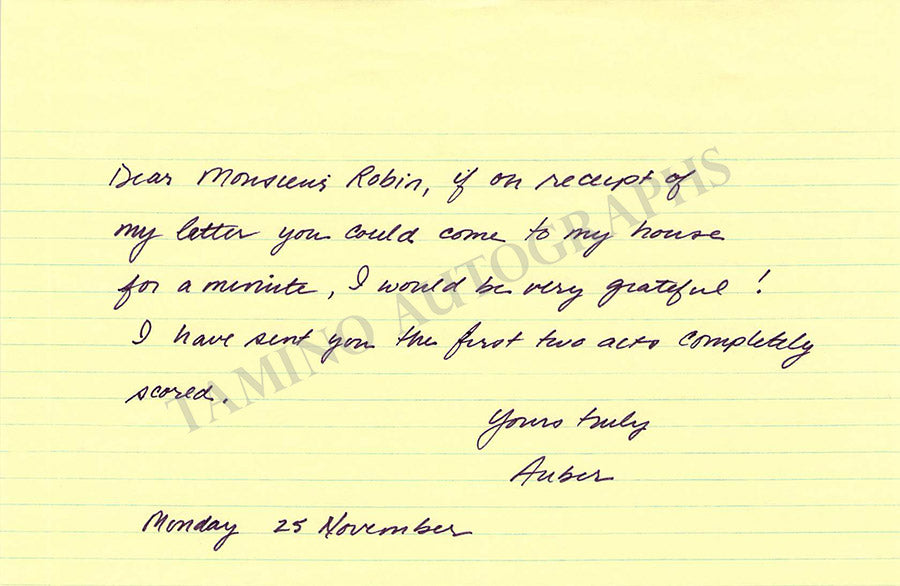 Dear Monsieur Robin, if on receipt of
my letter you could come to my house
for a minute, I would be very grateful!
I have sent you the first two acts completely
scored.
Yours truly
Auber
Monday 25 November
TAMINO AUTOGRAPHS